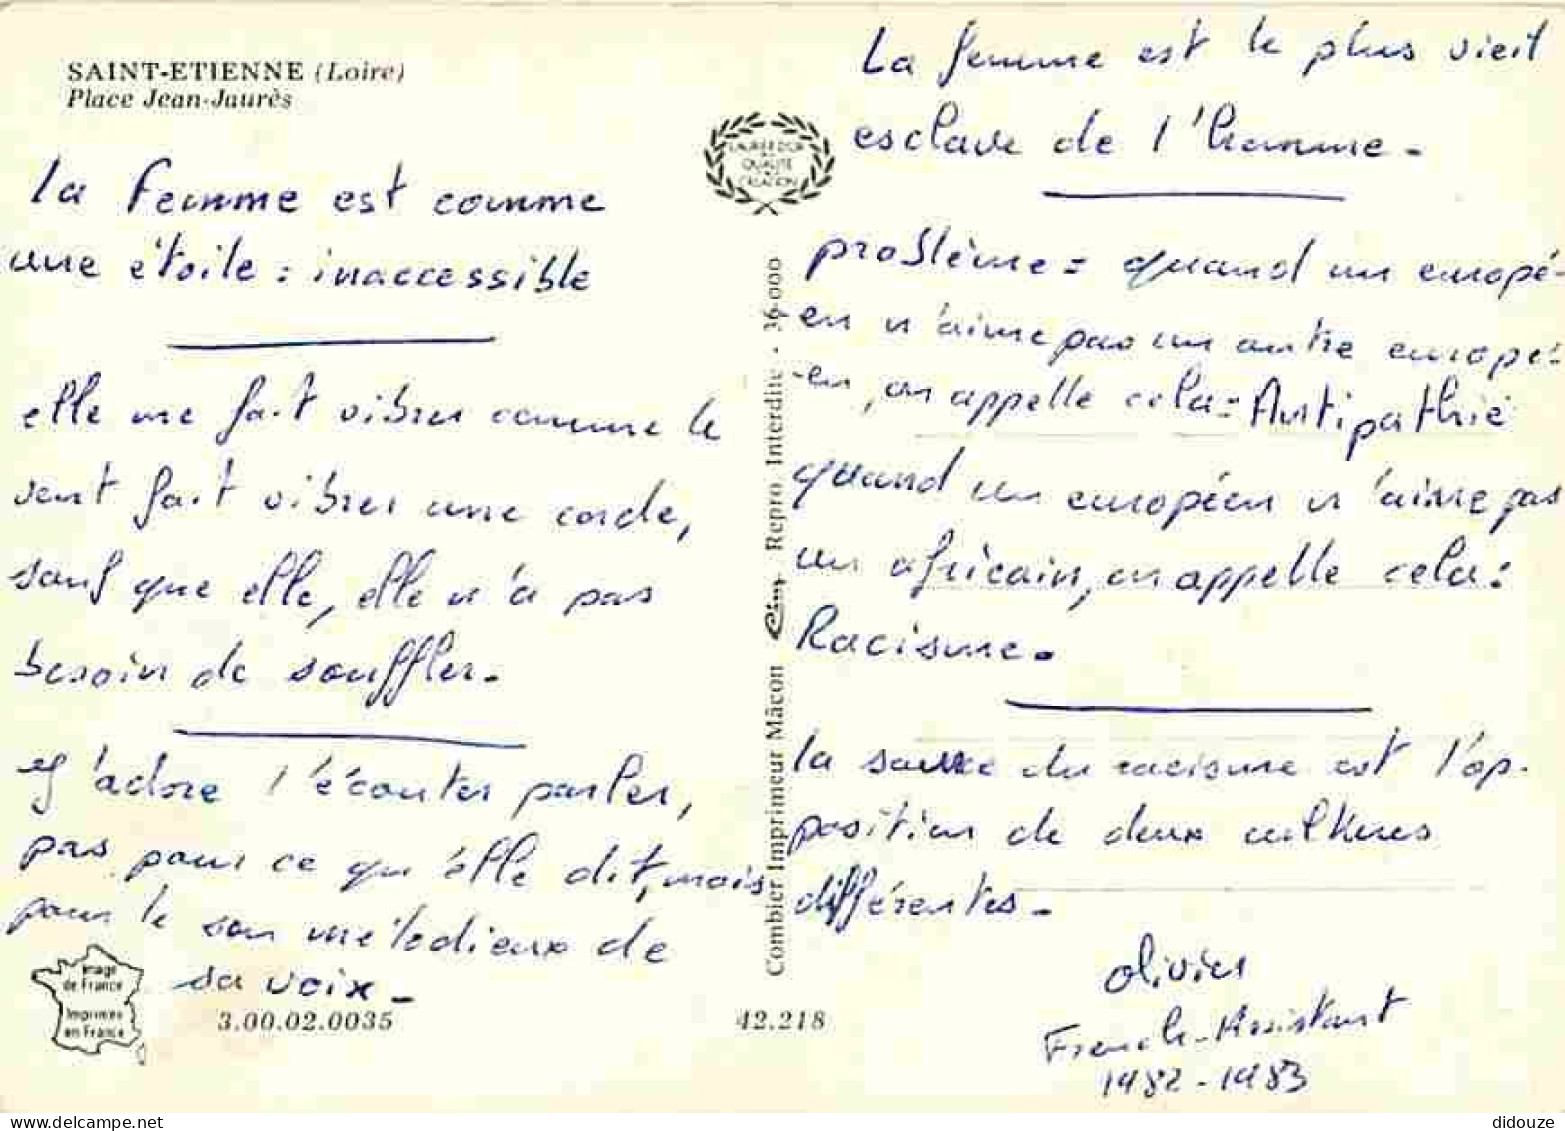 SAINT-ETIENNE (Loire)
Place Jean-Jaurès
la femme est comme
une étoile : inaccessible
elle me fait vibrer comme le
vent fait vibrer une corde,
sauf que elle, elle n'a pas
besoin de souffler.
J'adore l'écouter parler,
pas pour ce qu'elle dit, mais
pour le son mélodieux de
sa voix.
Image
de France
Imprimée
en France
3.00.02.0035
QUALITÉ
CRÉATION
Combier Imprimeur Mâcon Cim Repro. Interdite - 36-000
42.218
La femme est le plus vieil
esclave de l'homme.
problème : quand un europé-
en n'aime pas un autre europé-
-en, on appelle cela : Antipathie
quand un européen n'aime pas
un africain, on appelle cela :
Racisme.
la source du racisme est l'op-
position de deux cultures
différentes.
Olivier
French-Assistant
1982-1983
didouze